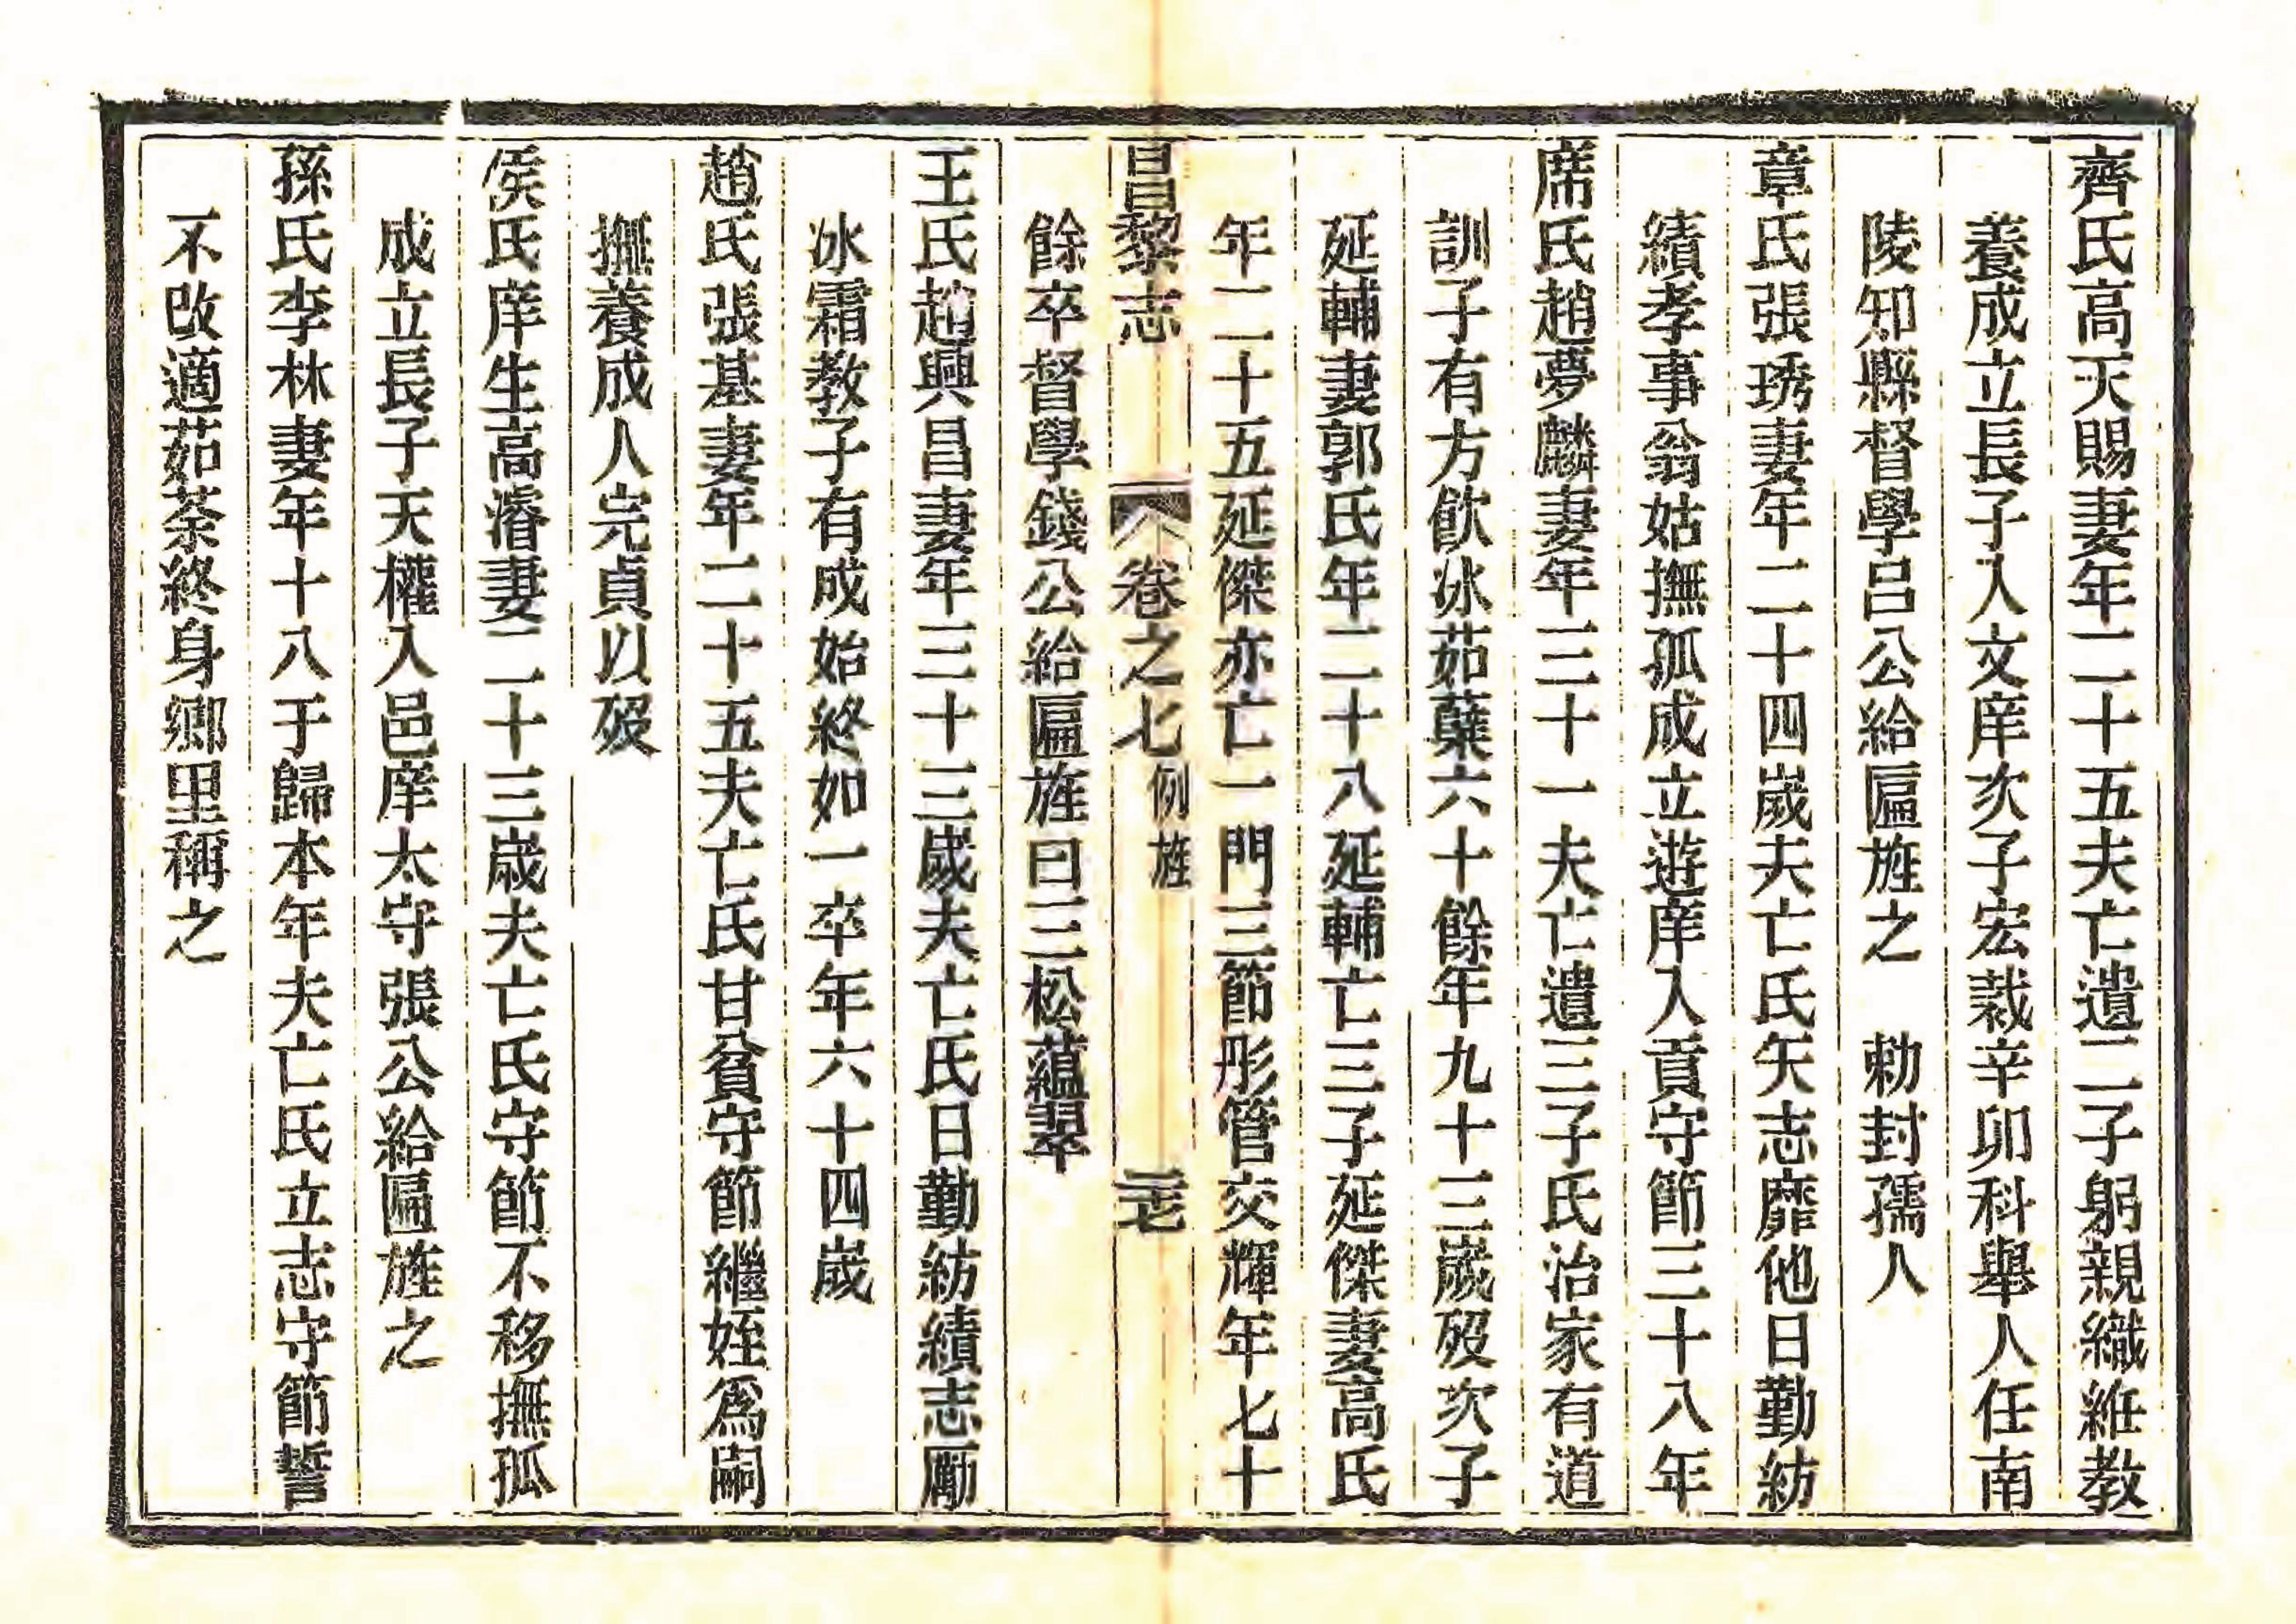 齊氏高天賜妻年二十五夫亡遺二子躬親織維教
養成立長子入文庠次子宏裁辛卯科舉人任南
陵知縣督學呂公給匾旌之　勅封孺人
章氏張琇妻年二十四歲夫亡氏矢志靡他日勤紡
績孝事翁姑撫孤成立遊庠入貢守節三十八年
席氏趙夢麟妻年三十一夫亡遺三子氏治家有道
訓子有方飲冰茹蘗六十餘年九十三歲歿次子
延輔妻郭氏年二十八延輔亡三子延傑妻高氏
年二十五延傑亦亡一門三節彤管交輝年七十
餘卒督學錢公給匾旌曰三松蘊翠
昌黎志　卷之七　例旌　二七
王氏趙興昌妻年三十三歲夫亡氏日勤紡績志勵
冰霜教子有成始終如一卒年六十四歲
趙氏張基妻年二十五夫亡氏甘貧守節繼姪爲嗣
撫養成人完貞以歿
侯氏庠生高濬妻二十三歲夫亡氏守節不移撫孤
成立長子天權入邑庠太守張公給匾旌之
孫氏李林妻年十八于歸本年夫亡氏立志守節誓
不改適茹荼終身鄉里稱之